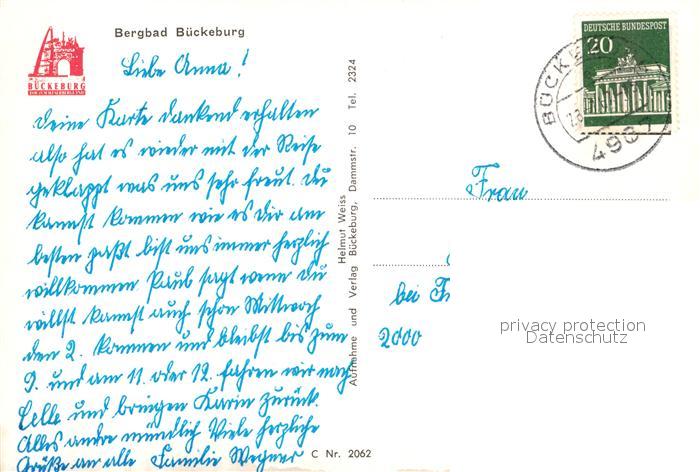 Bergbad Bückeburg
BÜCKEBURG
Liebe Anna!
deine Karte dankend erhalten
also hat es wieder mit der Reise
geklappt was uns sehr freut. du
kannst kommen wie es dir am
besten paßt bist uns immer herzlich
willkommen Paul sagt wenn du
willst kannst auch schon Mittwoch
den 2. kommen und bleibst bis zum
9. und am 11. oder 12. fahren wir nach
Celle und bringen Karin zurück.
Alles andre mündlich Viele herzliche
Grüße an alle Familie Wegner
Helmut Weiss
Aufnahme und Verlag Bückeburg, Dammstr. 10 Tel. 2324
C Nr. 2062
DEUTSCHE BUNDESPOST
20
4967
Frau
bei
2000
privacy protection
Datenschutz